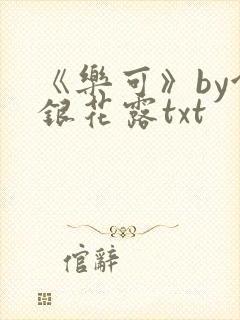 《樂可》by
銀花露txt
倌辭